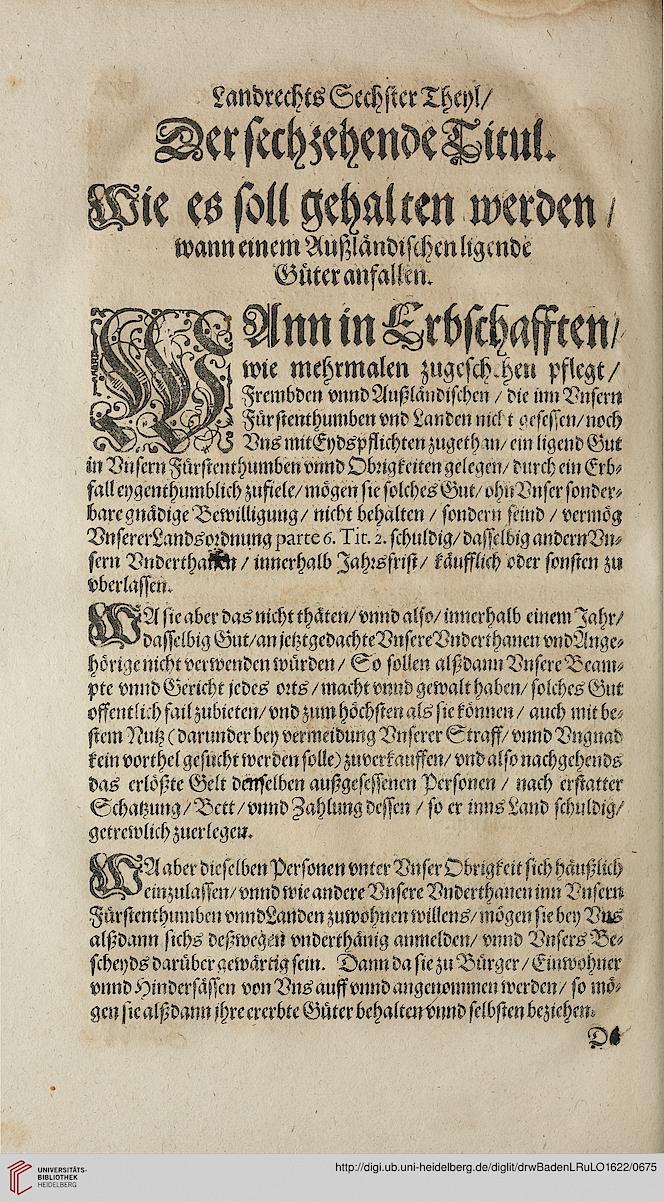 Landrechts Sechster Theyl/
Der sechzehende Titul.
Wie es soll gehalten werden /
wann einem Außländischen ligende
Güter anfallen.
WAnn in Erbschafften/
wie mehrmalen zugeschehen pflegt /
Frembden vnnd Außländischen / die inn Vnsern
Fürstenthumben vnd Landen nicht gesessen/ noch
Vns mit Eydspflichten zugethan/ ein ligend Gut
in Vnsern Fürstenthumben vnnd Obrigkeiten gelegen/ durch ein Erb-
fall eygenthumblich zufiele/ mögen sie solches Gut/ ohn Vnser sonder-
bare gnädige Bewilligung/ nicht behalten / sondern seind / vermög
Vnserer Landsordnung parte 6. Tit. 2. schuldig/ dasselbig andern Vn-
sern Vnderthanen / innerhalb Jahrsfrist/ käufflich oder sonsten zu
vberlassen.
WA sie aber das nicht thäten/ vnnd also/ innerhalb einem Jahr/
dasselbig Gut/ an jetztgedachte Vnsere Vnderthanen vnd Ange-
hörige nicht verwenden würden / So sollen alßdann Vnsere Beam-
pte vnnd Gericht jedes orts / macht vnnd gewalt haben/ solches Gut
offentlich fail zubieten/ vnd zum höchsten als sie können / auch mit be-
stem Nutz (darunder bey vermeidung Vnserer Straff/ vnnd Vngnad
kein vorthel gesucht werden solle) zuverkauffen/ vnd also nachgehends
das erlößte Gelt denselben außgesessenen Personen / nach erstatter
Schatzung/ Bett/ vnnd Zahlung dessen / so er inns Land schuldig/
getrewlich zuerlegen.
WA aber dieselben Personen vnter Vnser Obrigkeit sich häußlich
einzulassen/ vnnd wie andere Vnsere Vnderthanen inn Vnsern
Fürstenthumben vnnd Landen zuwohnen willens/ mögen sie bey Vns
alßdann sichs deßwegen vnderthänig anmelden/ vnnd Vnsers Be-
scheyds darüber gewärtig sein. Dann da sie zu Bürger / Einwohner
vnnd Hindersässen von Vns auff vnnd angenommen werden/ so mö-
gen sie alßdann jhre ererbte Güter behalten vnnd selbsten beziehen.
UNIVERSITÄTS-
BIBLIOTHEK
HEIDELBERG
http://digi.ub.uni-heidelberg.de/diglit/drwBadenLRuLO1622/0675